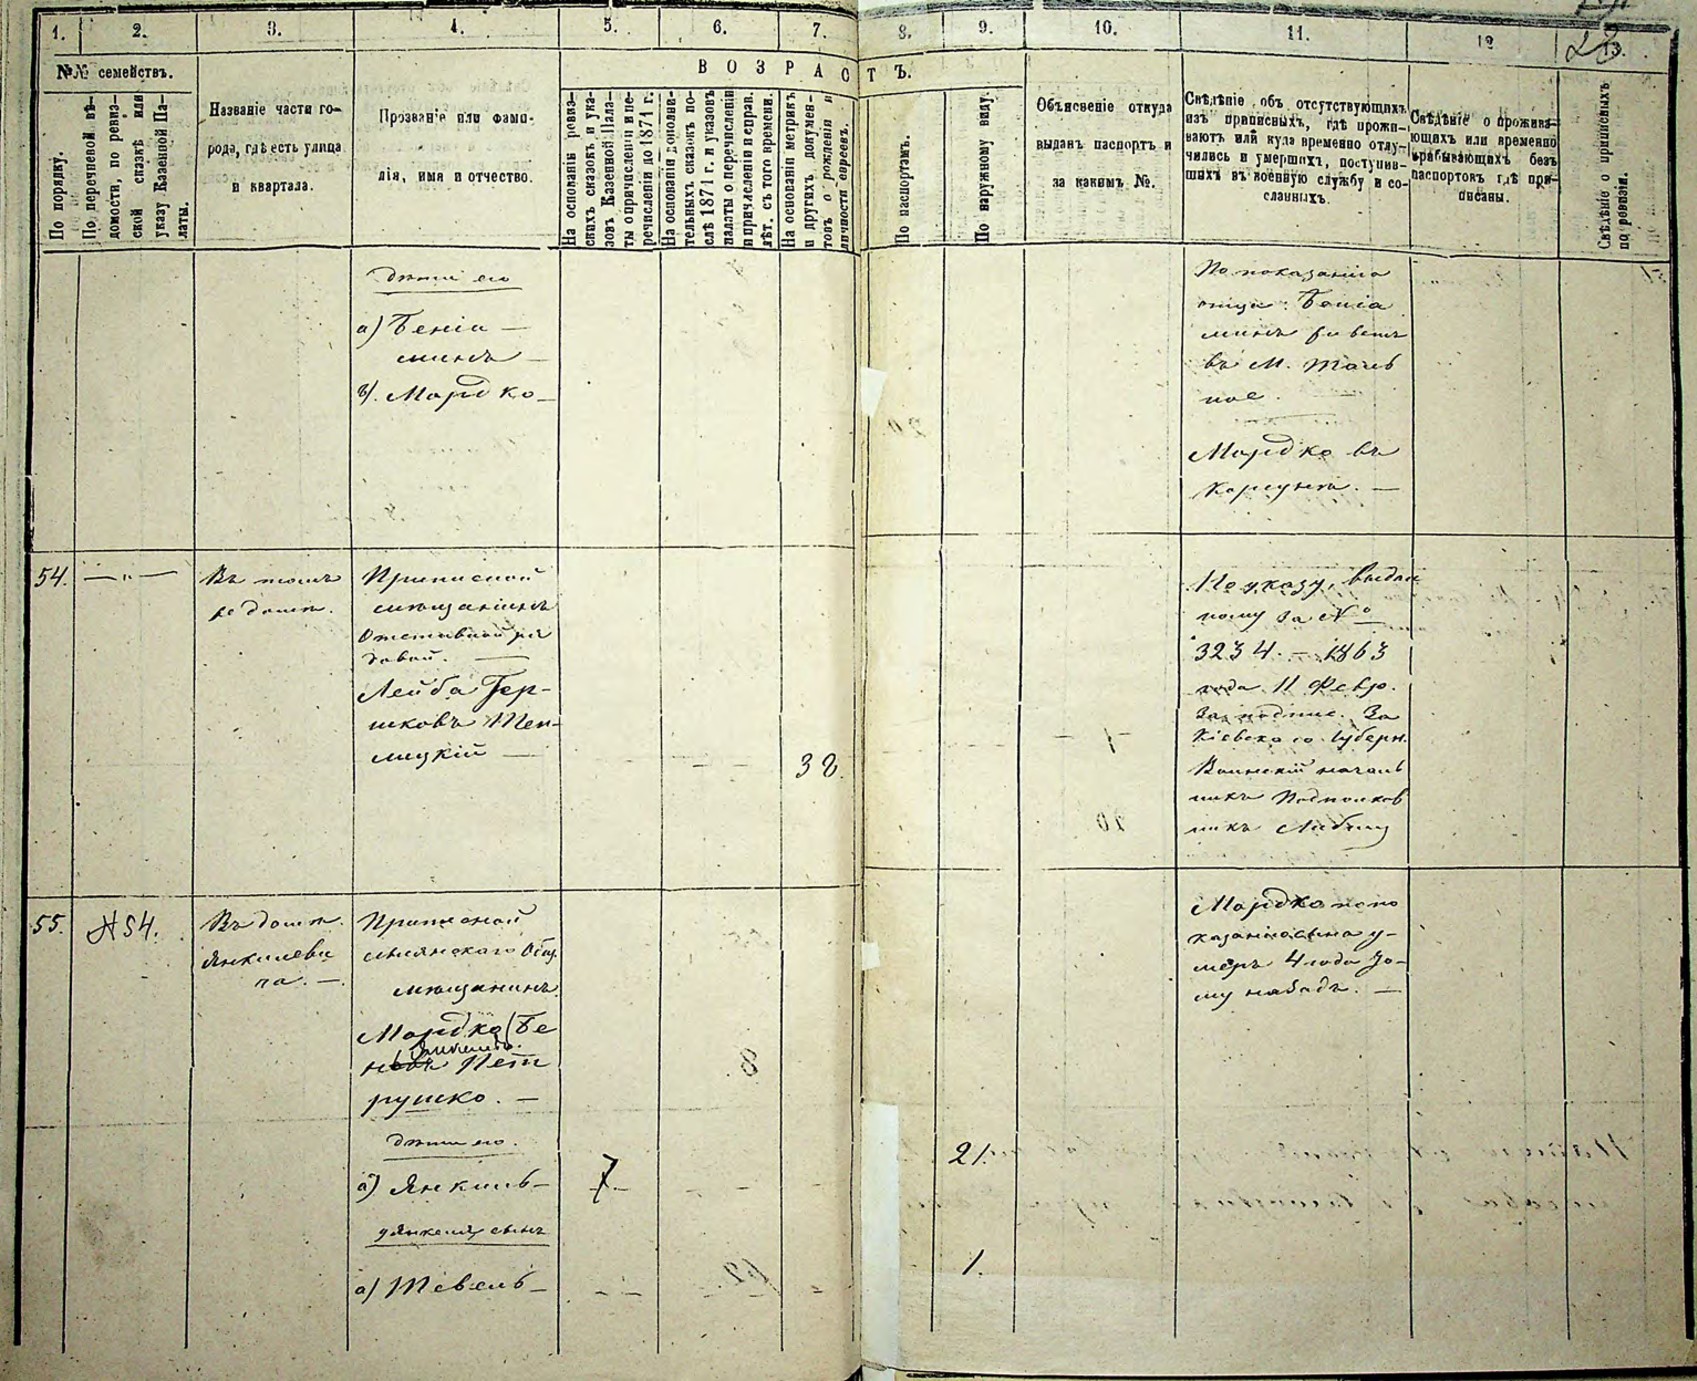 1. 2. 3. 4. 5. 6. 7. 8. 9. 10. 11. 12 13.
28
№№ семействъ.
ВОЗРАСТЪ.
По порядку.
По перечневой вѣ-
домости, по ревиз-
ской сказкѣ или
указу Казенной Па-
латы.
Названіе части го-
рода, гдѣ есть улица
и квартала.
Прозваніе или фами-
лія, имя и отчество.
На основаніи ревиз-
скихъ сказокъ и ука-
зовъ Казенной Пала-
ты о причисленіи и пе-
речисленіи до 1871 г.
На основаніи дополни-
тельныхъ сказокъ по-
слѣ 1871 г. и указовъ
палаты о перечисленіи
и причисленіи и справ.
лѣт. съ того времени.
На основаніи метрикъ
и другихъ докумен-
товъ о рожденіи и
личности евреевъ.
По паспортамъ.
По наружному виду.
Объясненіе откуда
выданъ паспортъ и
за какимъ №.
Свѣдѣніе объ отсутствующихъ
изъ приписныхъ, гдѣ прожи-
ваютъ или куда временно отлу-
чились и умершихъ, поступив-
шихъ въ военную службу и со-
сланныхъ.
Свѣдѣніе о прожива-
ющихъ или временно
пребывающихъ безъ
паспортовъ гдѣ при-
писаны.
Свѣдѣніе о приписныхъ
по ревизіи.
дѣти его
а) Беніа-
минъ
в). Мордко
По показанію
отца: Беніа
минъ живетъ
въ М. Таль
ное.
Мордко въ
Корсунѣ.
54. — „ —
Въ томъ
же домѣ.
Приписной
мѣщанинъ
Отставной ря
довой.
Лейба Гер-
шковъ Теп-
лицкій
38.
По указу, выдан
ному за №
3234. — 1863
года 11 Февр.
За подпис. За
Кіевскаго Губерн.
Воинскій началь
никъ Подполков
никъ
55. №54.
Въ домѣ
Янкилеви
ча.
Приписной
Мордко (Бе
новъ Пет
рушко.
мѣщанинъ.
дѣти его.
а) Янкиль 7. 21.
у Янкеля сынъ
а) Тевель 1.
Мордко по по
казанію сына у-
меръ 4 года то-
му назадъ.